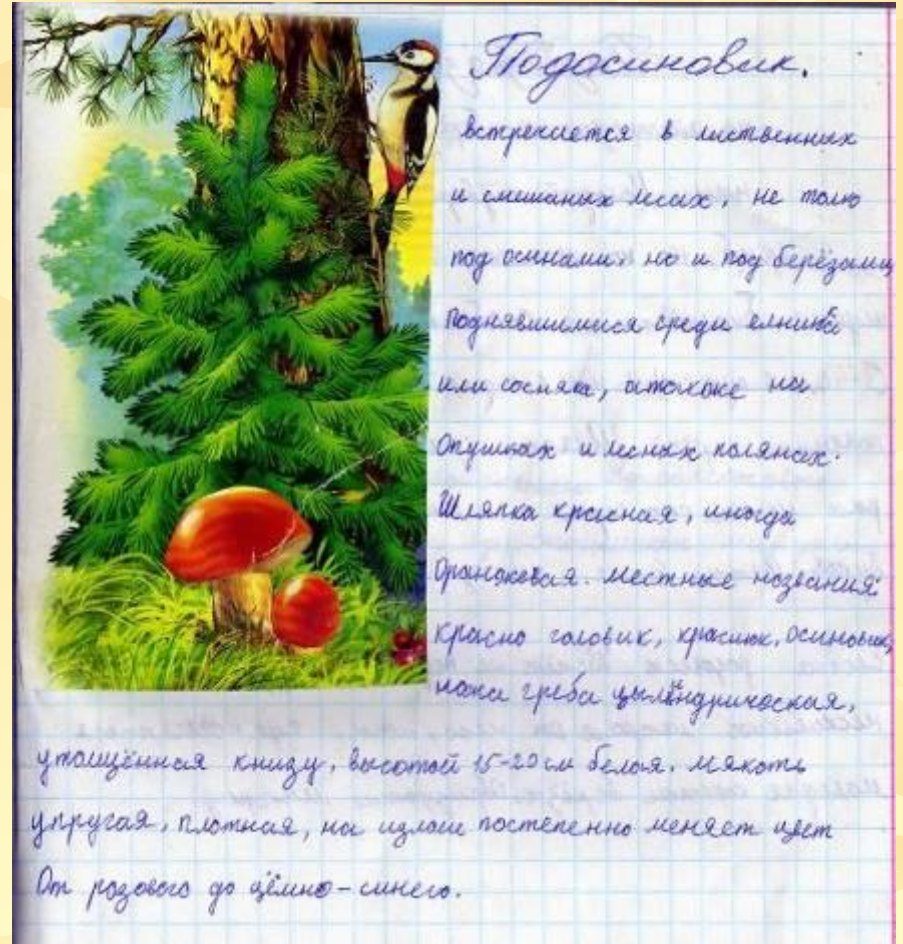 Подосиновик.
встречается в лиственных
и смешаных лесах, не толко
под осинами, но и под берёзами
поднявшимися среди елника
или сосняка, атакже на
опушках и лесных полянах.
Шляпка красная, иногда
оранжевая. местные названия:
красно головик, краснюк, осиновик,
ножа греба цылиндрическая,
утощённая книзу, высотой 15-20 см белая. мякоть
упругая, плотная, на излом постепенно меняет цвет
От розового до цёмно-синего.